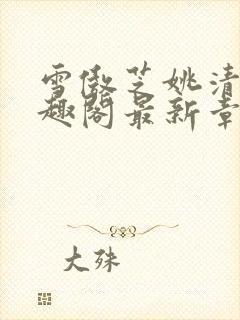 雪傲芝姚清
趣阁最新章
大殊